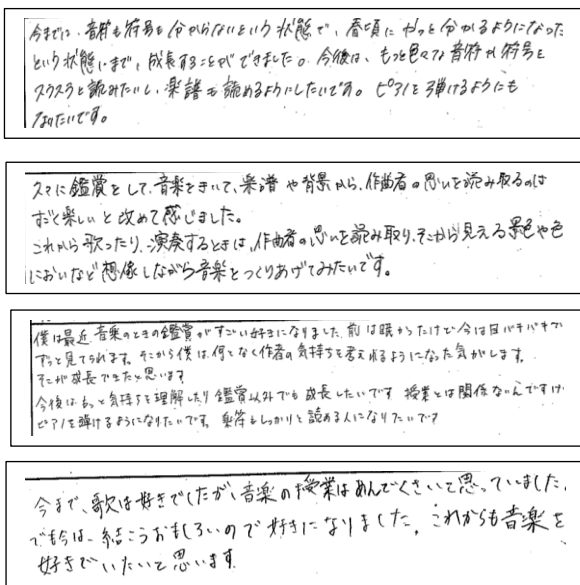 今までは、音符も符号も分からないという状態で、春頃にやっと分かるようになった
という状態にまで、成長することができました。今後は、もっと色々な音符や符号を
スラスラと読みたいし、楽譜も読めるようにしたいです。ピアノを弾けるようにも
なりたいです。
スマに鑑賞をして、音楽をきいて、楽譜や背景から、作曲者の思いを読み取るのは
すごく楽しいと改めて感じました。
これから歌ったり、演奏するときは、作曲者の思いを読み取り、そこから見える景色や色
においなど想像しながら音楽をつくりあげてみたいです。
僕は最近 音楽のときの鑑賞がすごい好きになりました 前は眠かったけど今は目バチバチで
ずっと見てられます。そこから僕は何となく作者の気持ちを考えれるようになった気がします。
そこが成長できたと思います
今後はもっと気持ちを理解したり鑑賞以外でも成長したいです 授業とは関係ないんですけ
ピアノを弾けるようになりたいです。楽符もしっかりと読める人になりたいです
今まで、歌は好きでしたが、音楽の授業はめんどくさいと思っていました。
でも今は、結こうおもしろいので好きになりました。これからも音楽を
好きでいたいと思います